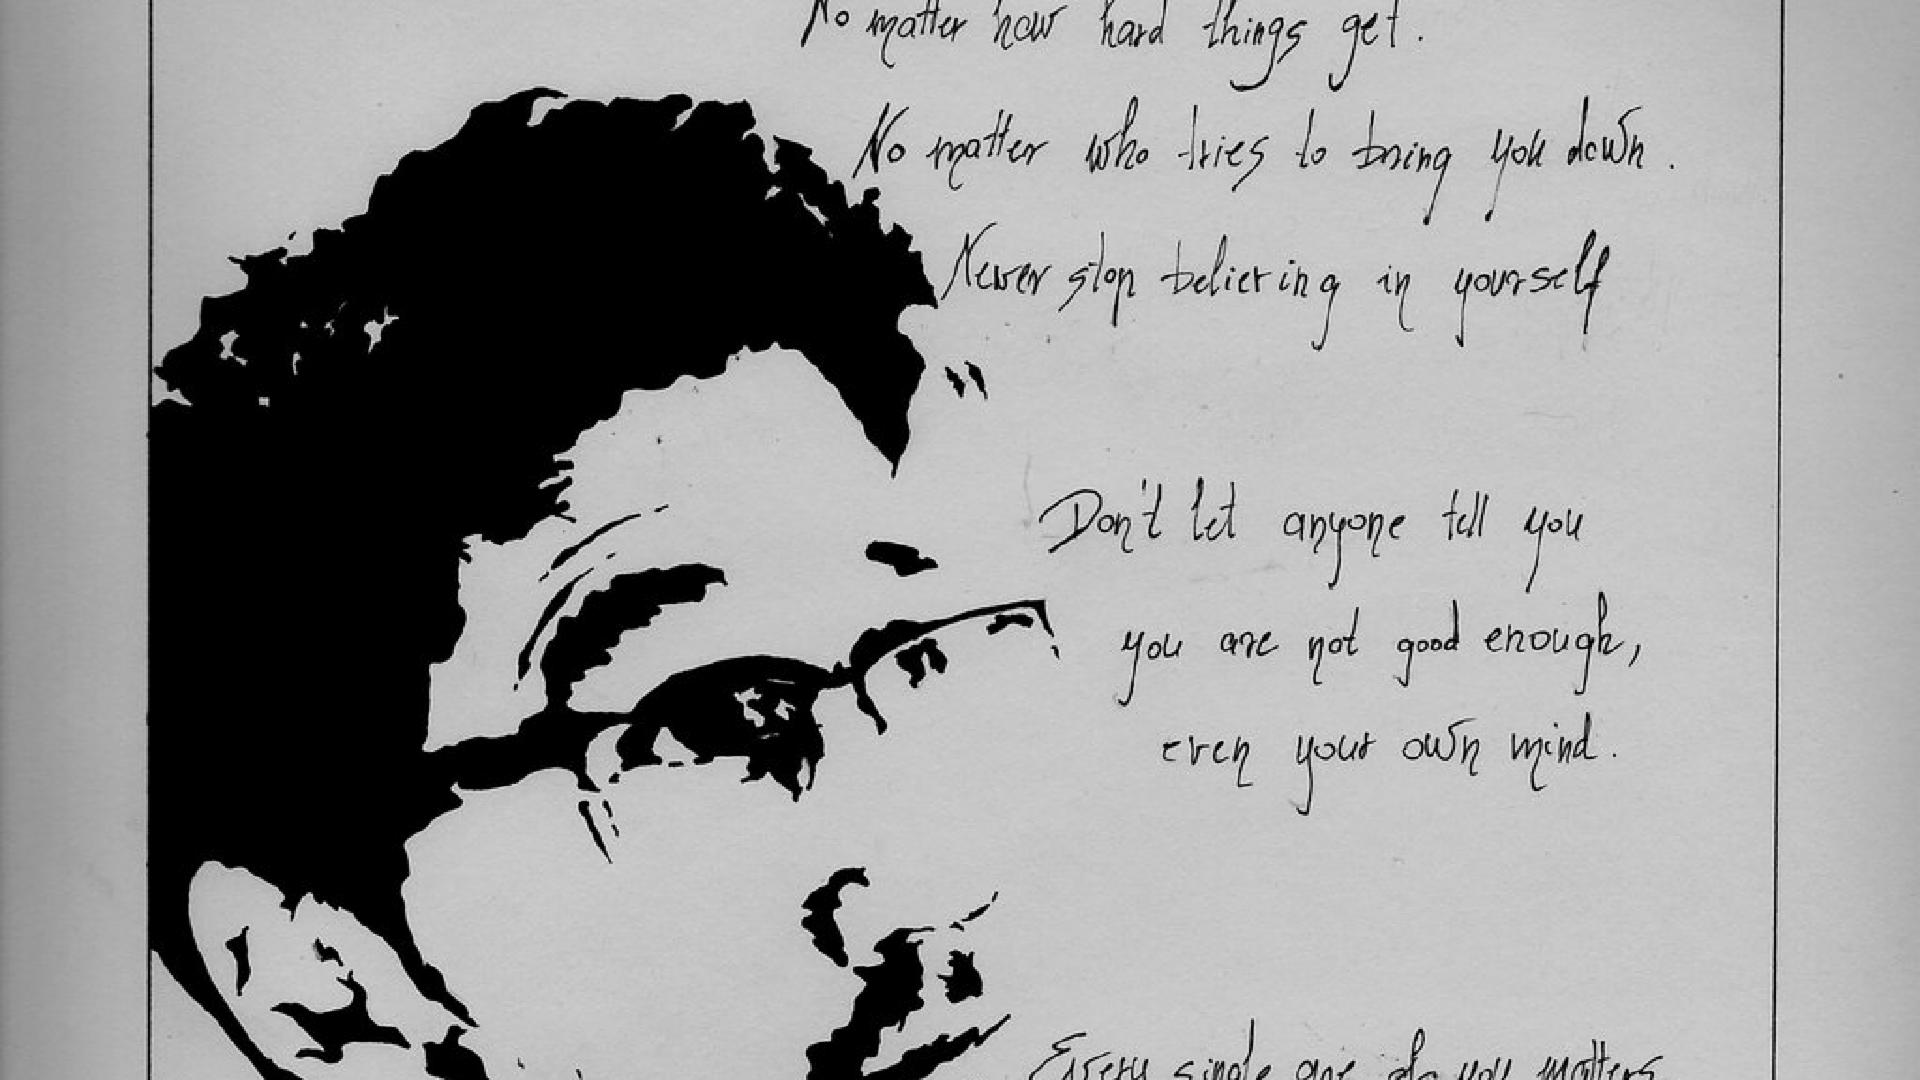 No matter how hard things get.
No matter who tries to bring you down.
Never stop believing in yourself
Don't let anyone tell you
you are not good enough,
even your own mind.
Every single one of you matters